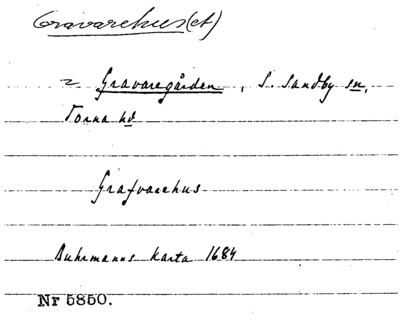 Gravarehus(et)
= Gravaregården, S. Sandby sn,
Torna hd
Grafvarehus
Buhrmanns karta 1684
Nr 5850.